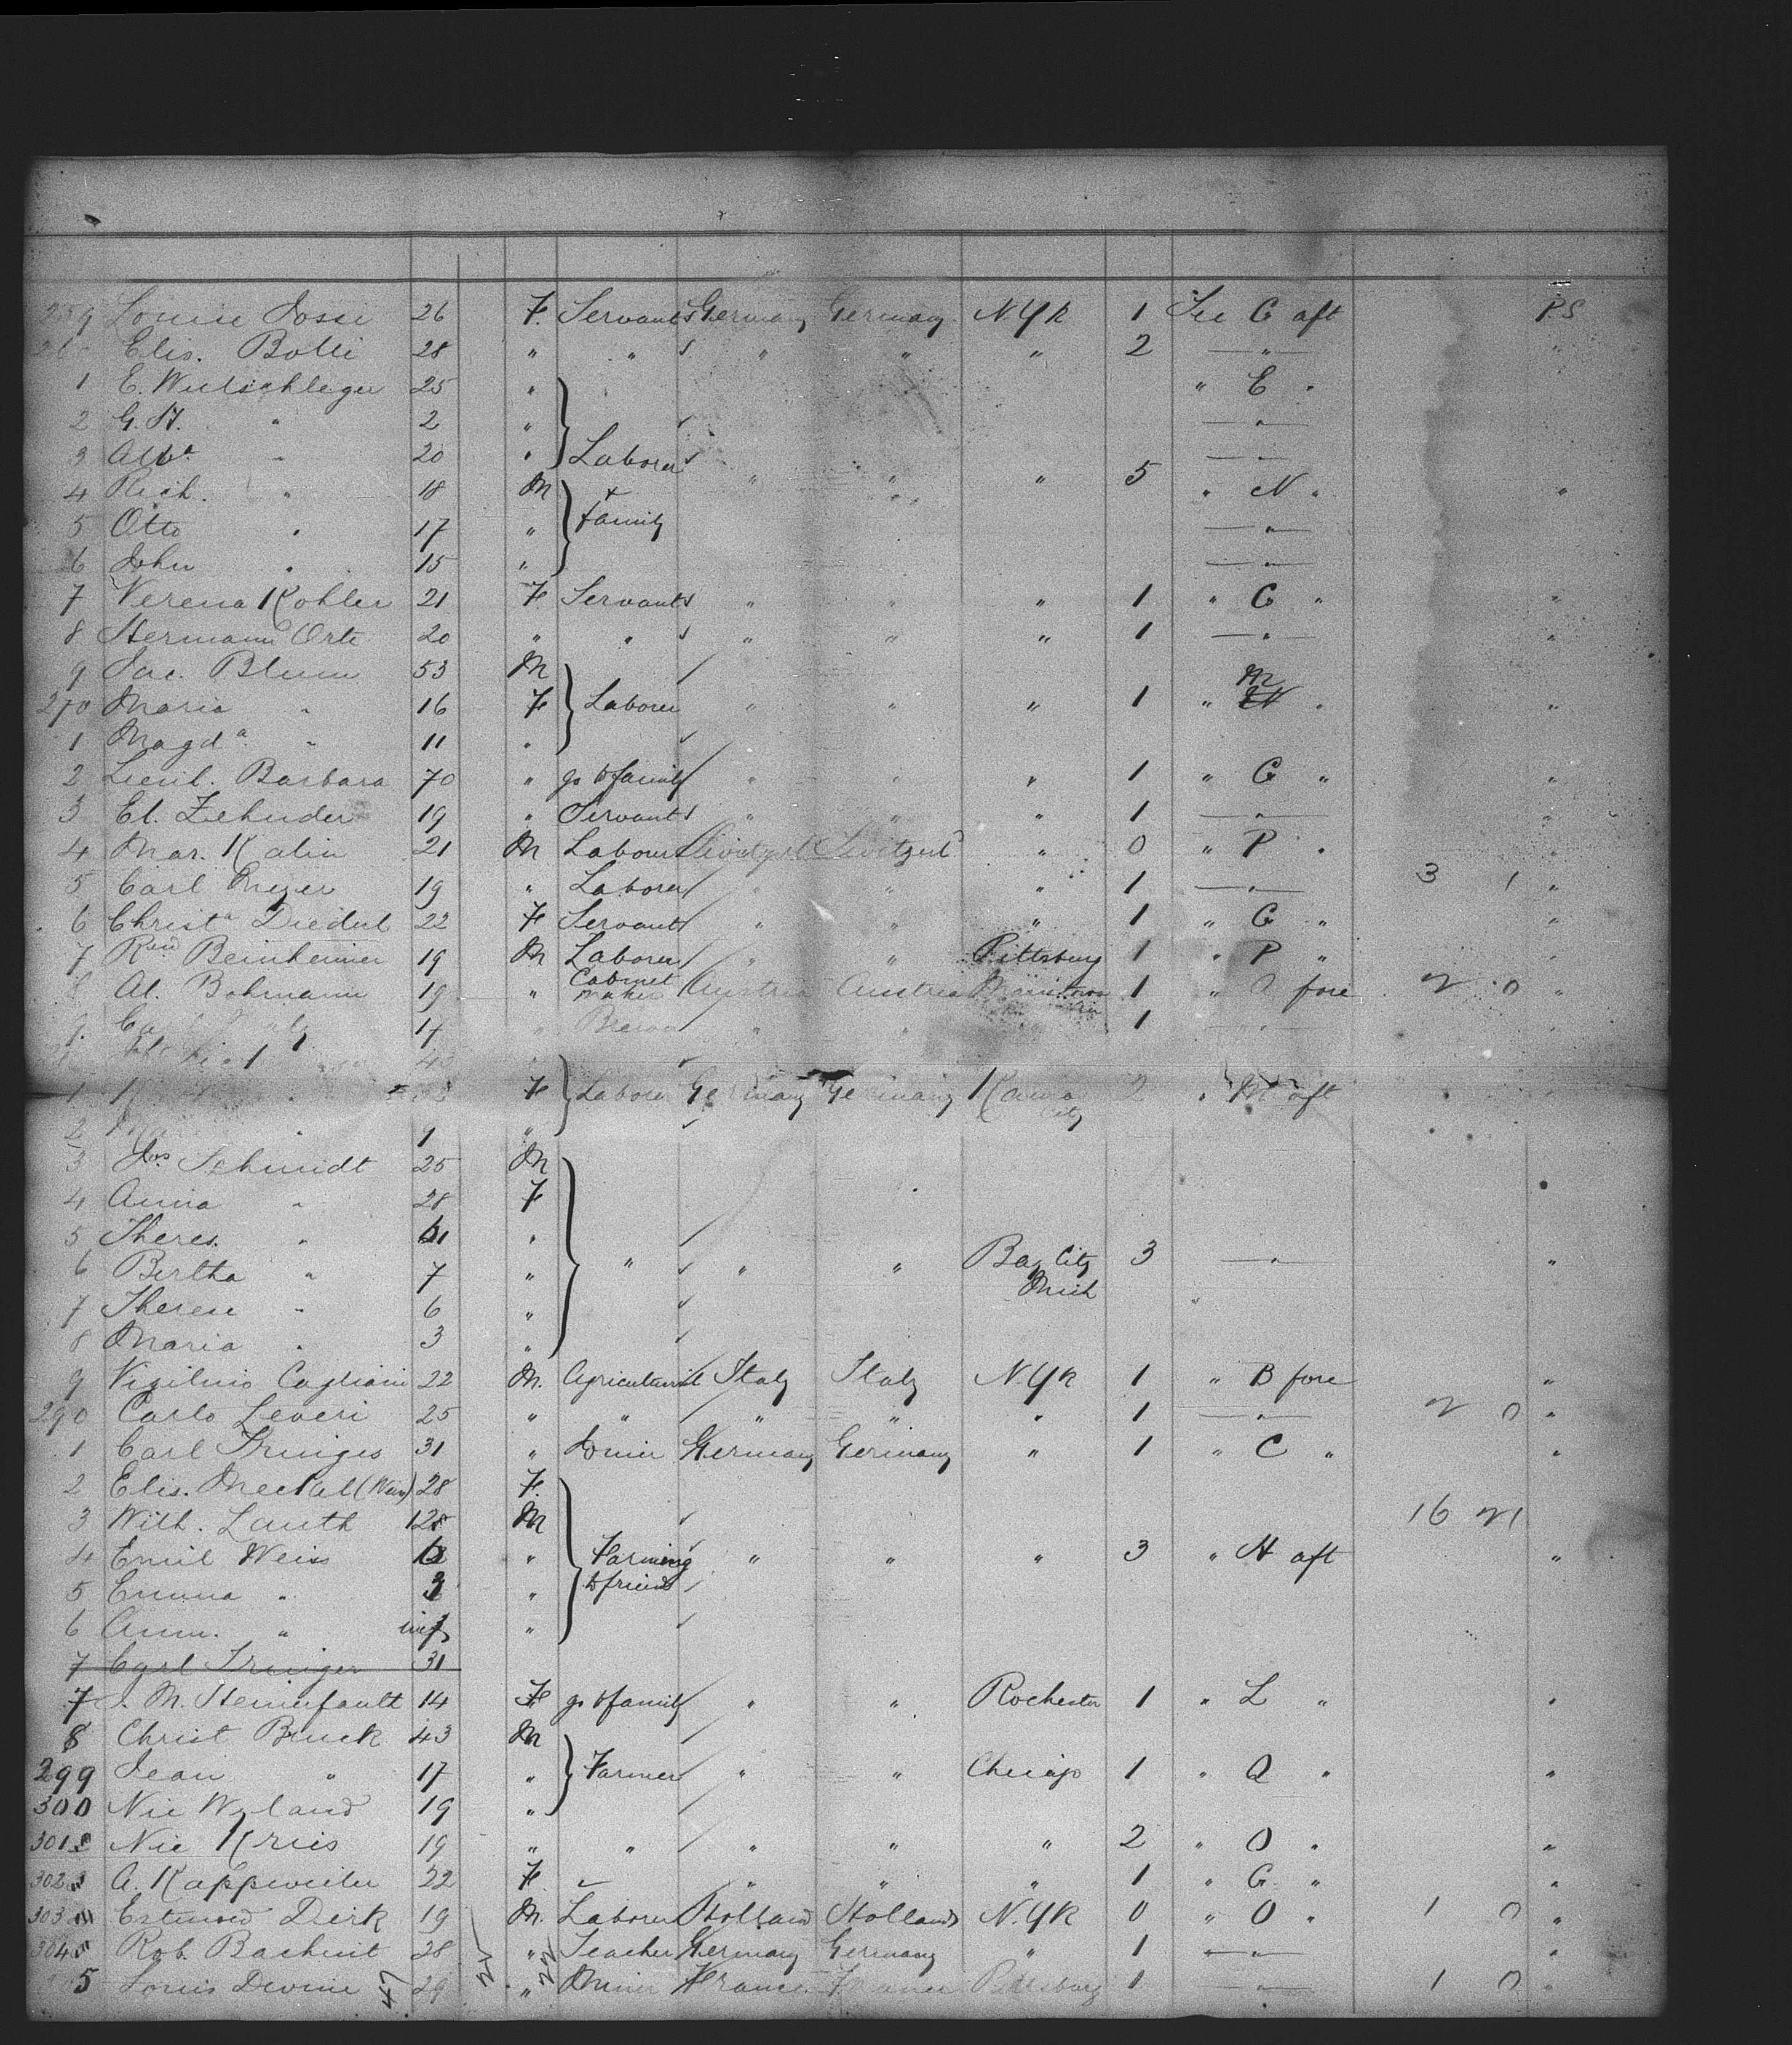 259 Louise Jossi 26 F. Servant Germany Germany N.Yk 1 Sec G aft PS
Elis. Bolli 28 " " " " " 2 — " — "
1 E. Wutschleger 25 " " E "
2 G. H. " 2 " — " —
3 Alba " 20 " Laborer — " —
4 Rich. " 18 M " " " 5 " N " "
5 Otto " 17 " + family — " —
6 John " 15 " — " —
7 Verena Kohler 21 F Servant " " " 1 " G " "
8 Hermann Orti 20 " " " " " 1 — " — "
9 Jac. Blum 53 M M
270 Maria " 16 F Laborer " " " 1 " " "
1 Magda " 11 "
2 Barbara 70 " go to family " " " 1 " G " "
3 El. Zehnder 19 " Servant " " " 1 — " — "
4 Mar. Kalin 21 M Laborer Switzerl Switzerld " 0 " P " "
5 Carl Meyer 19 " Laborer " " " 1 — " — 3 1 "
6 Christa 22 F Servant " " " 1 " G " "
7 Beinheimer 19 M Laborer " " Pittsburg 1 " P " "
8 Al. Bohmann 19 " Cabinet maker Austria Austria 1 " fore 2 0 "
9 17 " " " 1 — " —
1 F Laborer Germany Germany Kansas City 2 " M aft "
2 9 "
3 Jos Schmidt 25 M
4 Anna " 28 F
5 Theres. " 11 "
6 Bertha " 7 " " " " Bay City Mich 3 — " — "
7 Therese " 6 "
8 Maria " 3 "
9 Vigilinio Cagliani 22 M. Agriculturist Italy Italy N.Yk 1 " B fore "
290 Carlo Leveri 25 " " " " " 1 — " — 2 0 "
1 Carl Truiges 31 " Joiner Germany Germany " 1 " C " "
2 Elis. Meckel (Weis) 28 F.
3 Wilh. Lauth 28 M 16 21
4 Emil Weiss " Farming " " " 3 " H aft "
5 Emma " 3 " to friend
6 Ann. " inf "
7 Carl Truiger 31
7 J. M. Heinerfault 14 F go to family " " Rochester 1 " L " "
8 Christ Bruck 43 M
299 Jean " 17 " Farmer " " Chicago 1 " Q " "
300 Nic Wyland 19 "
301 Nic Kries 19 " " " " " 2 " O " "
302 A. Kappweiler 22 F. " " " " 1 " G. " "
303 Dirk 19 M. Laborer Holland Holland N.Yk 0 " O " 1 0 "
304 Rob. Bachnit 28 " Teacher Germany Germany " 1 — " — "
5 Louis Devine 29 " Miner France France Pittsburg 1 — " — 1 0 "
47 25 22